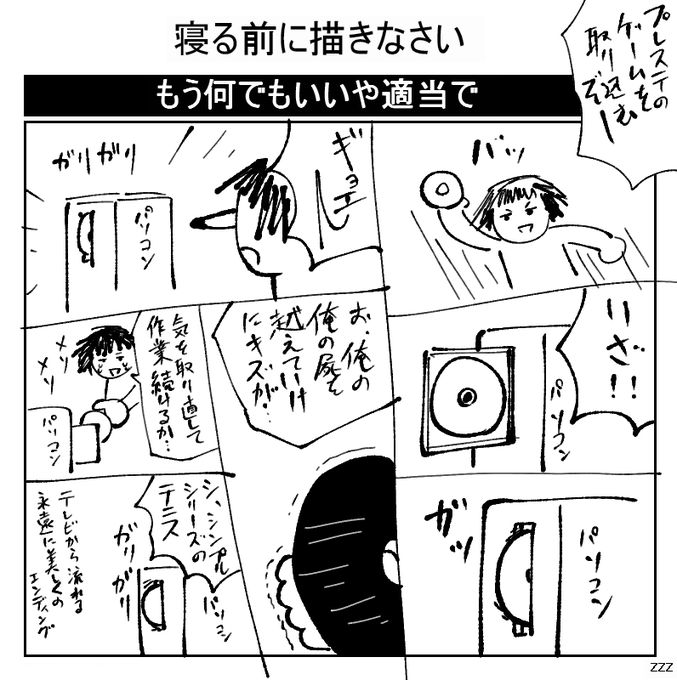 寝る前に描きなさい
もう何でもいいや適当で
プレステの
ゲームを
取り込む
ぞー
バッ
いざ!!
パソコン
ガッ
パソコン
ギョエー
ガリガリ
パソコン
お、俺の
俺の屍を
越えていけ
にキズが…
気を取り直して
作業続けるか…
メソ
メソ
パソコン
シ、シンプル
シリーズの
テニス
ガリ
ガリ
パソコン
テレビから流れる
永遠に美しくの
エンディング
ZZZ